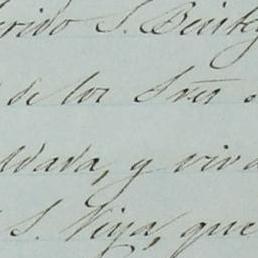 erido S. Benite
de los Sres
ldada, y viva
S. Viya, que